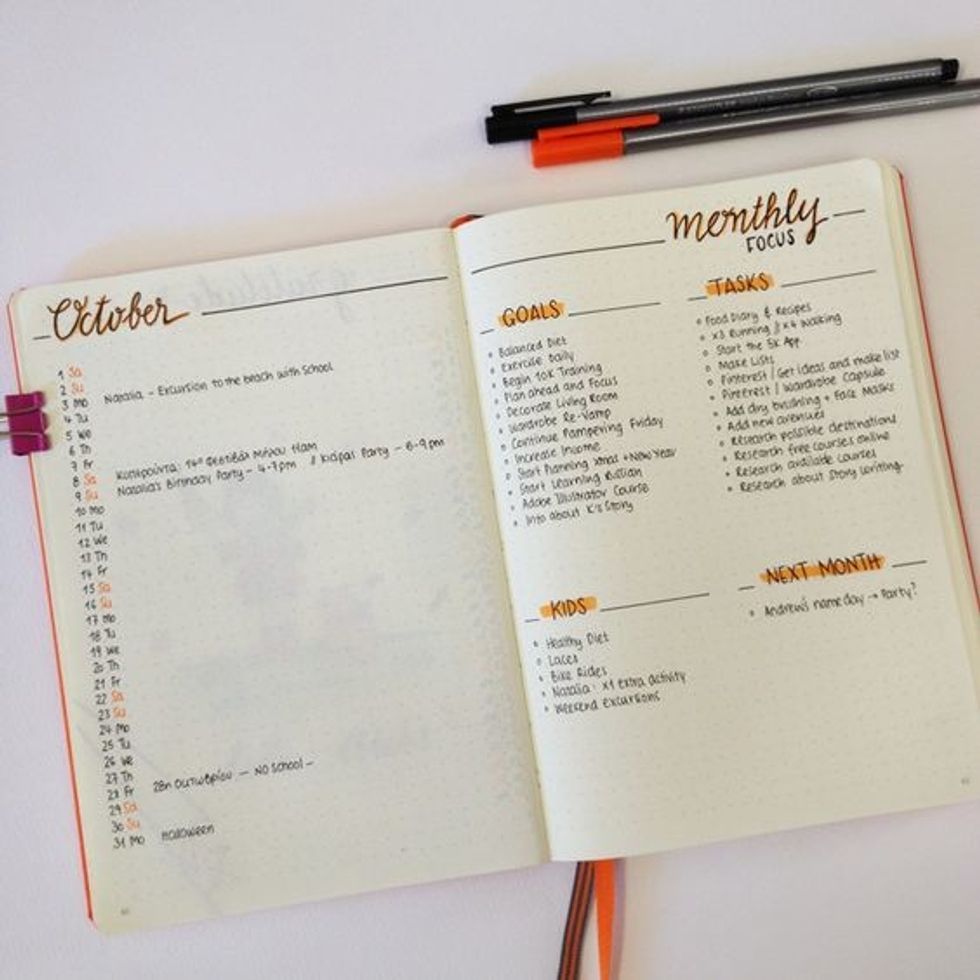 October
1 Sa
2 Su
3 Mo Natalia - Excursion to the beach with School
4 Tu
5 We
6 Th
7 Fr
8 Sa 14ο Φεστιβάλ Μήλου 11am
9 Su Natalia's Birthday Party - 4-7pm // Party - 6-9pm
10 Mo
11 Tu
12 We
13 Th
14 Fr
15 Sa
16 Su
17 Mo
18 Tu
19 We
20 Th
21 Fr
22 Sa
23 Su
24 Mo
25 Tu
26 We
27 Th
28 Fr 28η Οκτωβρίου - NO School -
29 Sa
30 Su
31 Mo Halloween
monthly
FOCUS
GOALS
Balanced Diet
Exercise Daily
Begin 10K Training
Plan ahead and Focus
Decorate Living Room
Wardrobe Re-Vamp
Continue Pampering Friday
Increase Income
Start Planning Xmas + New Year
Start Learning Russian
Adobe Illustrator Course
Into about K's Story
TASKS
Food Diary & Recipes
x3 Running // x4 Walking
Start the 5K App
Make Lists
Pinterest / Get ideas and make list
Pinterest / Wardrobe Capsule
Add dry brushing + Face Masks
Add new avenues
Research possible destinations
Research free courses online
Research available courses
Research about Story Writing
KIDS
Healthy Diet
Laces
Bike Rides
Natalia: x1 extra activity
Weekend Excursions
NEXT MONTH
Andrew's name day → Party?